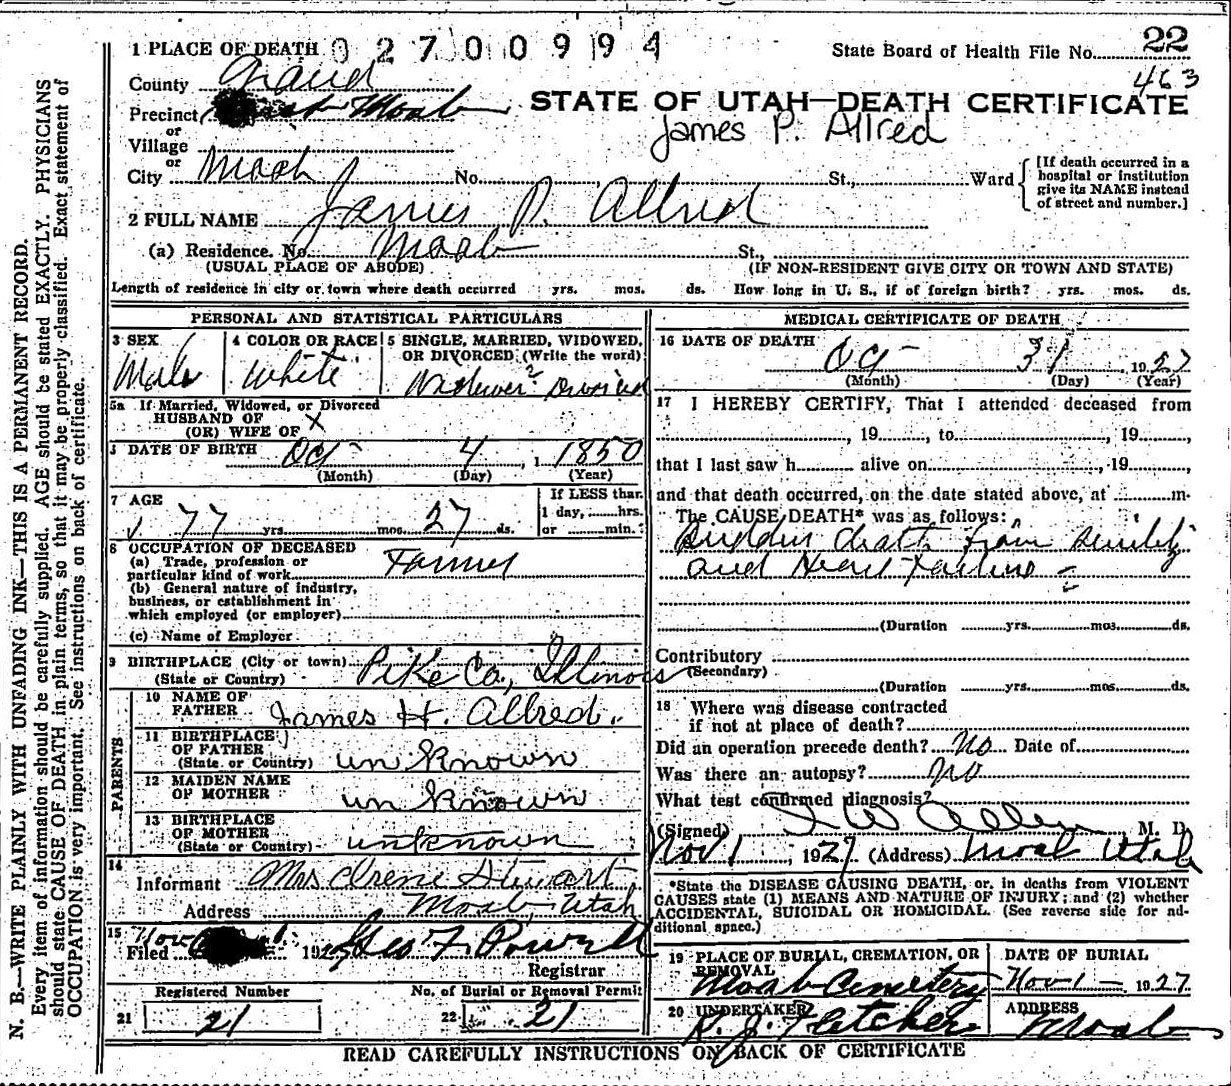 1 PLACE OF DEATH 02700994 State Board of Health File No. 22
County Grand 463
Precinct Moab STATE OF UTAH—DEATH CERTIFICATE
or
Village James P. Allred
or
City Moab No. St., Ward {[If death occurred in a hospital or institution give its NAME instead of street and number.]
2 FULL NAME James P. Allred
(a) Residence. No. Moab St.,
(USUAL PLACE OF ABODE) (IF NON-RESIDENT GIVE CITY OR TOWN AND STATE)
Length of residence in city or town where death occurred yrs. mos. ds. How long in U. S., if of foreign birth? yrs. mos. ds.
PERSONAL AND STATISTICAL PARTICULARS
3 SEX
Male
4 COLOR OR RACE
White
5 SINGLE, MARRIED, WIDOWED,
OR DIVORCED (Write the word)
Widower? Divorced
5a If Married, Widowed, or Divorced
HUSBAND OF
(OR) WIFE OF X
DATE OF BIRTH Oct 4, 1 1850
(Month) (Day) (Year)
7 AGE
77 yrs. mos. 27 ds.
If LESS than
1 day, hrs.
or min.
8 OCCUPATION OF DECEASED
(a) Trade, profession or
particular kind of work Farmer
(b) General nature of industry,
business, or establishment in
which employed (or employer)
(c) Name of Employer
9 BIRTHPLACE (City or town) Pike Co., Illinois
(State or Country)
PARENTS
10 NAME OF
FATHER James H. Allred.
11 BIRTHPLACE
OF FATHER
(State or Country) unknown
12 MAIDEN NAME
OF MOTHER unknown
13 BIRTHPLACE
OF MOTHER
(State or Country) unknown
14
Informant Mrs Irene Stewart
Address Moab, Utah
15
Filed Nov 192 Geo F. Powell
Registrar
Registered Number
21 21
No. of Burial or Removal Permit
22 21
MEDICAL CERTIFICATE OF DEATH
16 DATE OF DEATH
Oct 31 1927
(Month) (Day) (Year)
17 I HEREBY CERTIFY, That I attended deceased from
, 19 , to , 19 ,
that I last saw h alive on , 19 ,
and that death occurred, on the date stated above, at m.
The CAUSE DEATH* was as follows:
Sudden death from senility
and Heart Failure
(Duration yrs. mos. ds.
Contributory
(Secondary)
(Duration yrs. mos. ds.
18 Where was disease contracted
if not at place of death?
Did an operation precede death? No Date of
Was there an autopsy? No
What test confirmed diagnosis?
(Signed) I W Allen M. D.
Nov 1, 1927 (Address) Moab Utah
*State the DISEASE CAUSING DEATH, or, in deaths from VIOLENT
CAUSES state (1) MEANS AND NATURE OF INJURY; and (2) whether
ACCIDENTAL, SUICIDAL OR HOMICIDAL. (See reverse side for ad-
ditional space.)
19 PLACE OF BURIAL, CREMATION, OR
REMOVAL
Moab Cemetery
DATE OF BURIAL
Nov 1 1927
20 UNDERTAKER
R. J. Fletcher
ADDRESS
Moab
READ CAREFULLY INSTRUCTIONS ON BACK OF CERTIFICATE
N. B.—WRITE PLAINLY WITH UNFADING INK—THIS IS A PERMANENT RECORD.
Every item of information should be carefully supplied. AGE should be stated EXACTLY. PHYSICIANS
should state CAUSE OF DEATH in plain terms, so that it may be properly classified. Exact statement of
OCCUPATION is very important. See instructions on back of certificate.